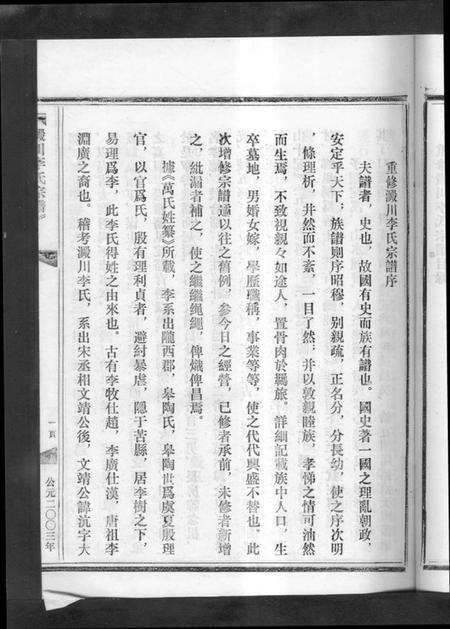 重修澱川李氏宗譜序
夫譜者，史也，故國有史而族有譜也。國史著一國之理亂朝政，
安定乎天下，族譜則序昭穆，別親疏，正名分，分長幼，使之序次明
，條理析，井然而不紊，一目了然；并以敦親睦族，孝悌之情可油然
而生焉，不致視親々如途人，置骨肉於羈旅。詳細記載族中人口，生
卒墓地，男婚女嫁，學歷職稱，事業等等，使之代代興盛不替也。此
次增修宗譜遵以往之舊例，參今日之經營，已修者承前，未修者新增
之，紕漏者補之，使之繼繼繩繩，俾熾俾昌焉。
據《萬氏姓纂》所載，李系出隴西郡，皋陶氏，皋陶世爲虞夏殷理
官，以官爲氏，殷有理利貞者，避紂暴虐，隱于苦縣，居李樹之下，
易理爲李，此李氏得姓之由來也。古有李牧仕趙，李廣仕漢，唐祖李
淵廣之裔也。稽考澱川李氏，系出宋丞相文靖公後，文靖公諱沆字太
川李氏宗譜
一頁
公元二〇〇三年